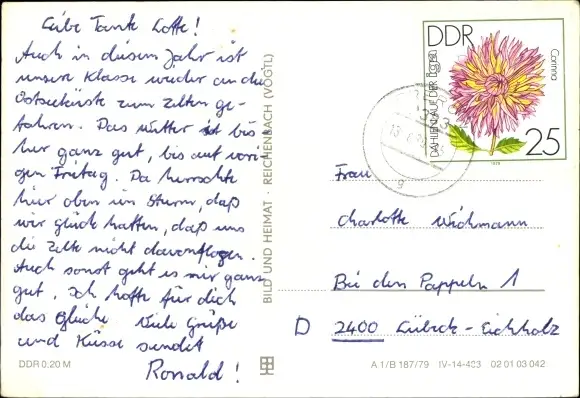 Liebe Tante Lotte!
Auch in diesem Jahr ist
unsere Klasse wieder an die
Ostseeküste zum Zelten ge-
fahren. Das Wetter ist bis
her ganz gut, bis auf vori-
gen Freitag. Da herrschte
hier oben ein Sturm, daß
wir Glück hatten, daß uns
die Zelte nicht davonflogen.
Auch sonst geht es mir ganz
gut. Ich hoffe für dich
das Gleiche. Viele Grüße
und Küsse sendet
Ronald!
DDR 0,20 M
BILD UND HEIMAT · REICHENBACH (VOGTL)
DDR
DAHLIENLAUF DER
Corinna
25
1979
Frau
Charlotte Wichmann
Bei den Pappeln 1
D 2400 Lübeck-Eichholz
A 1/B 187/79 IV-14-483 02 01 03 042